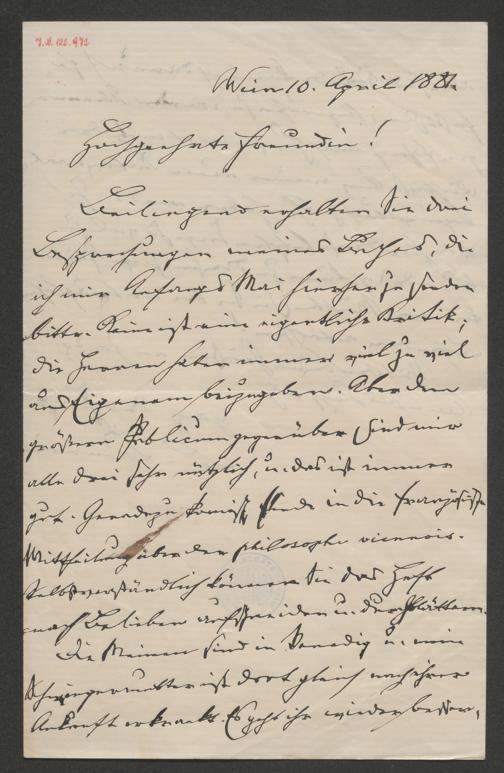 J.N. 122.972
Wien 10. April 1881.
Hochgeehrte Freundin!
Beiliegend erhalten Sie drei
Besprechungen meines Buches, die
ich mir Anfangs Mai hierher zu senden
bitte. Keine ist eine eigentliche Kritik;
die Herren haben immer viel zu viel
aus Eigenem beizugeben. Aber dem
größern Publicum gegenüber sind mir
alle drei sehr nützlich, u. das ist immer
gut. Geradezu komisch finde ich die französische
Mittheilung über den philosophe viennois.
Selbstverständlich können Sie das Heft
nach Belieben aufschneiden u. durchblättern.
Die Meinen sind in Venedig u. meine
Schwiegermutter ist dort gleich nach ihrer
Ankunft erkrankt. Es geht ihr wieder besser,